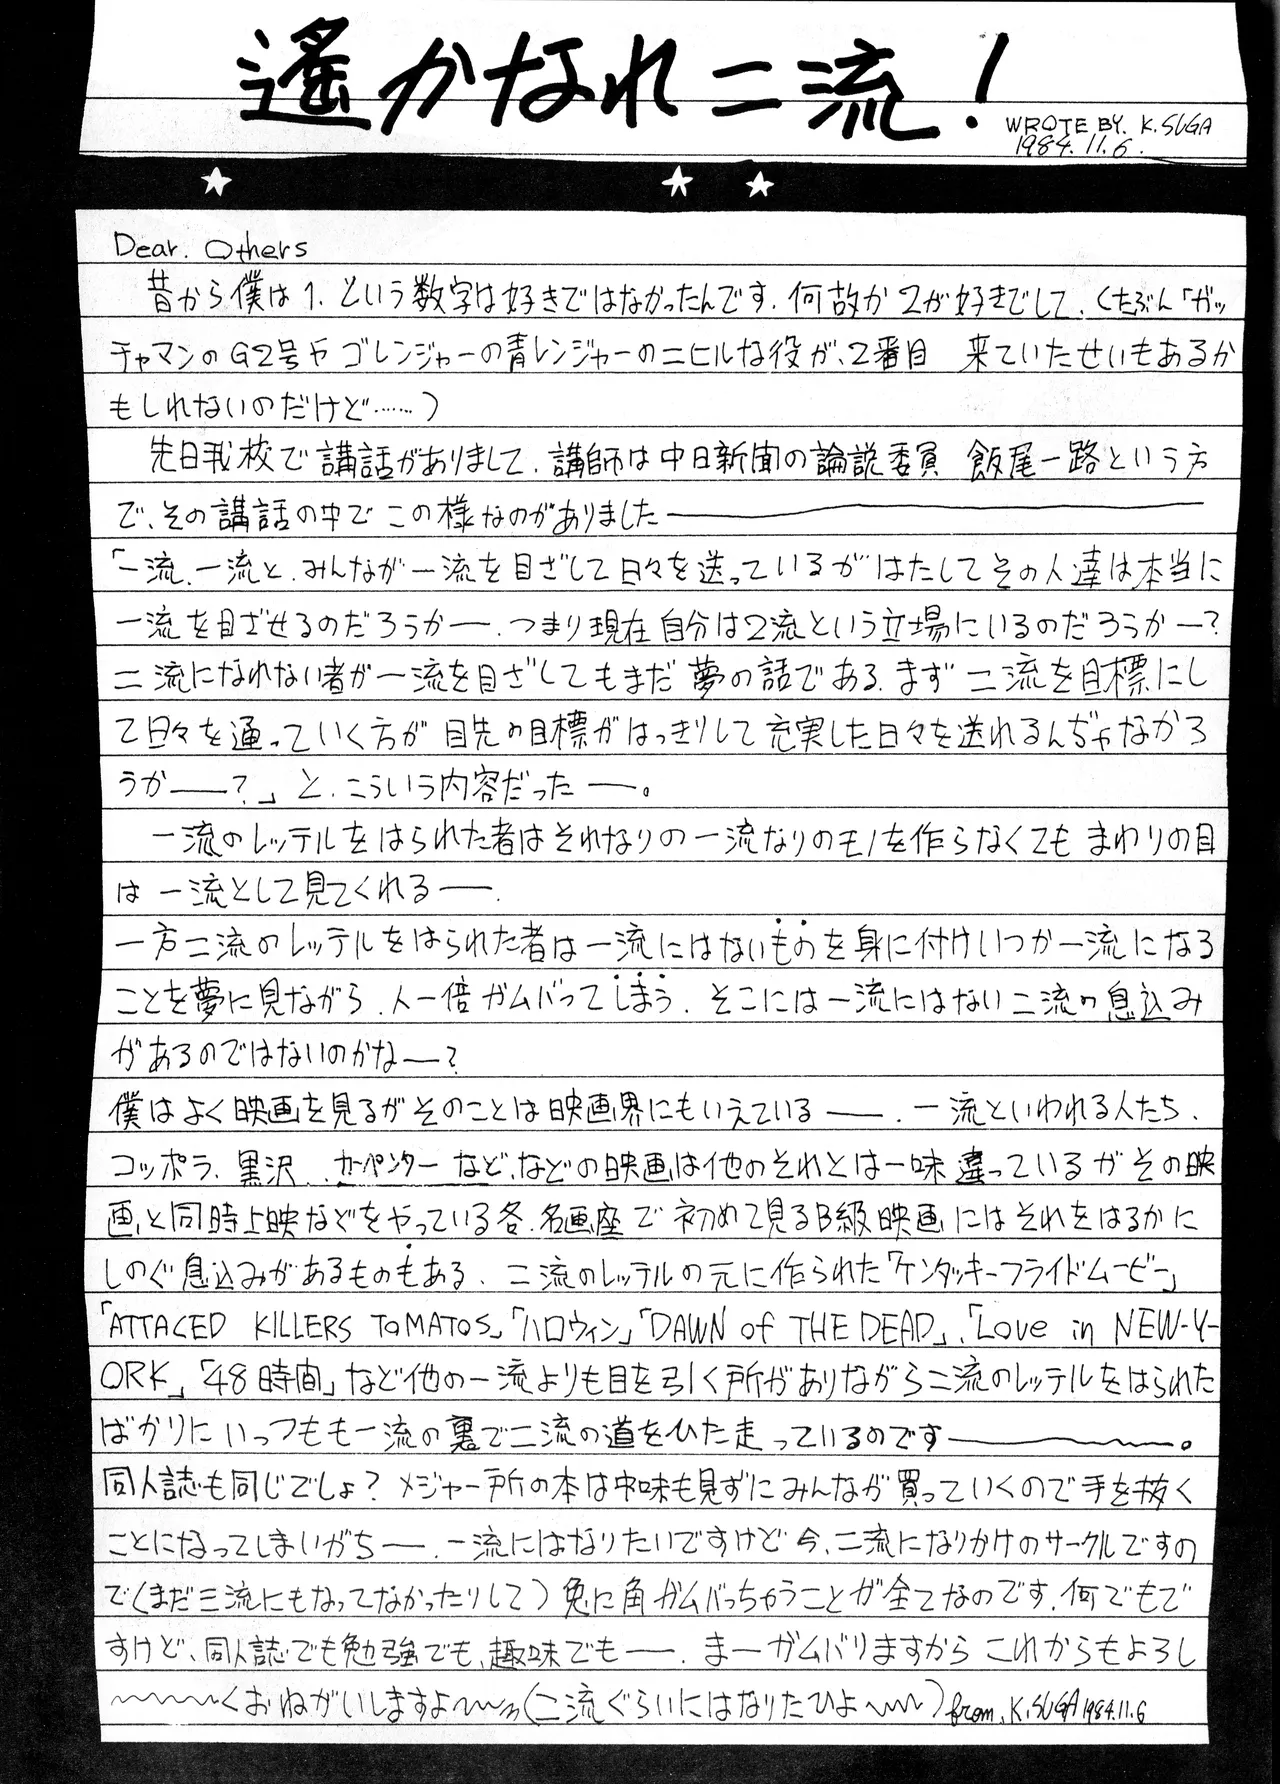 遙かなれ二流！
WROTE BY. K.SUGA
1984.11.6.
Dear. Others
昔から僕は1.という数字は好きではなかったんです.何故か2が好きでして、(たぶん「ガッ
チャマンのG2号やゴレンジャーの青レンジャーのニヒルな役が、2番目 来ていたせいもあるか
もしれないのだけど……)
先日我校で講話がありまして、講師は中日新聞の論説委員 飯尾一路という方
で、その講話の中でこの様なのがありました――
「一流、一流と、みんなが一流を目ざして日々を送っているがはたしてその人達は本当に
一流を目ざせるのだろうかー、つまり現在自分は2流という立場にいるのだろうかー?
二流になれない者が一流を目ざしてもまだ夢の話である.まず二流を目標にし
て日々を通っていく方が目先の目標がはっきりして充実した日々を送れるんぢゃなかろ
うか――?」と、こういう内容だった――。
一流のレッテルをはられた者はそれなりの一流なりのモノを作らなくてもまわりの目
は一流として見てくれる――.
一方二流のレッテルをはられた者は一流にはないものを身に付けいつか一流になる
ことを夢に見ながら、人一倍ガムバってしまう.そこには一流にはない二流の息込み
があるのではないのかな―?
僕はよく映画を見るがそのことは映画界にもいえている――.一流といわれる人たち、
コッポラ、黒沢、カーペンターなど、などの映画は他のそれとは一味違っているがその映
画と同時上映などをやっている各、名画座で初めて見るB級映画にはそれをはるかに
しのぐ息込みがあるものもある、二流のレッテルの元に作られた「ケンタッキーフライドムービー」
「ATTACED KILLERS TOMATOS」「ハロウィン」「DAWN of THE DEAD」、「Love in NEW-Y-
ORK」「48時間」など他の一流よりも目を引く所がありながら二流のレッテルをはられた
ばかりにいつもも一流の裏で二流の道をひた走っているのです――。
同人誌も同じでしょ?メジャー所の本は中味も見ずにみんなが買っていくので手を抜く
ことになってしまいがち―.一流にはなりたいですけど今、二流になりかけのサークルですの
で(まだ三流にもなってなかったりして)兎に角ガムバっちゃうことが全てなのです.何でもで
すけど、同人誌でも勉強でも、趣味でも――.まーガムバりますからこれからもよろし
～～～くおねがいしますよ～～(二流ぐらいにはなりたひよ～～)from.K.SUGA1984.11.6